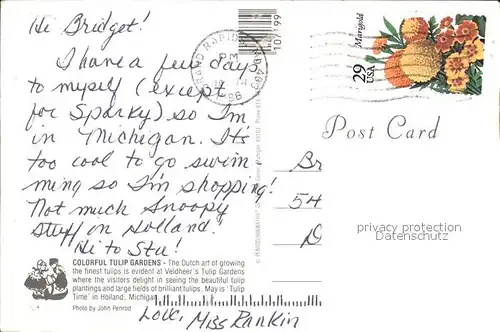 Hi Bridget!
I have a few days
to myself (except
for Sparky) so I'm
in Michigan. It's
too cool to go swim
ming so I'm shopping!
Not much Snoopy
stuff in Holland.
Hi to Stu!
Love, Miss Rankin
COLORFUL TULIP GARDENS - The Dutch art of growing
the finest tulips is evident at Veldheer's Tulip Gardens
where the visitors delight in seeing the beautiful tulip
plantings and large fields of brilliant tulips. May is 'Tulip
Time' in Holland, Michigan.
Photo by John Penrod
107199
GRAND RAPIDS
PM
Marigold
29
USA
Post Card
Br
54
D
privacy protection
Datenschutz